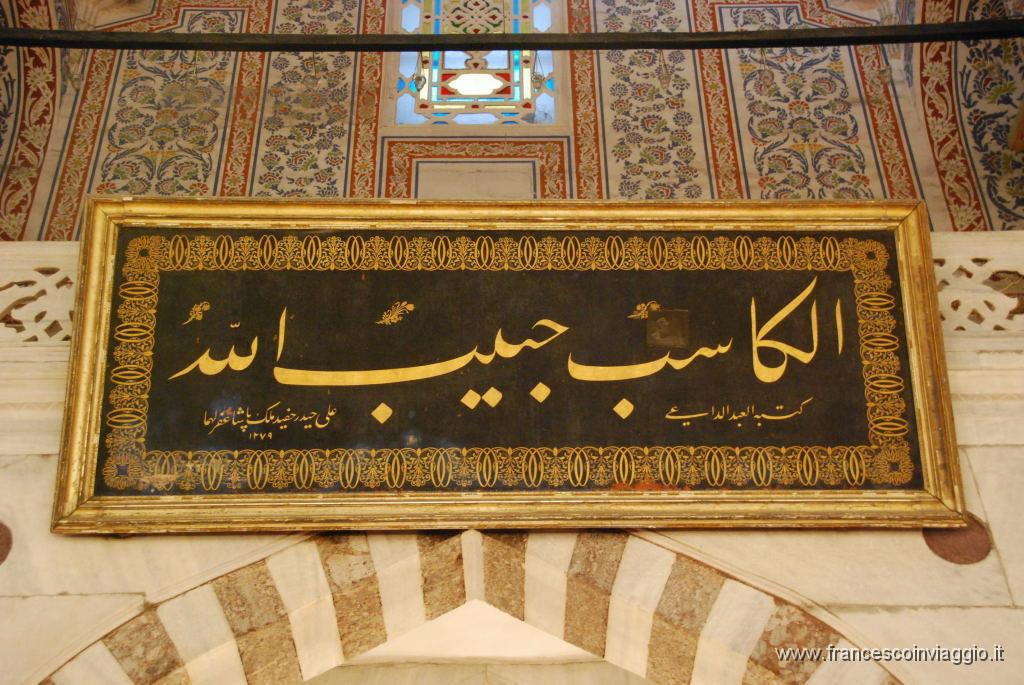 الكاسب حبيب الله
كتبه العبد الداعي
علي حيدر حفيد ملك پاشا غفر لهما
١٢٧٩
www.francescoinviaggio.it